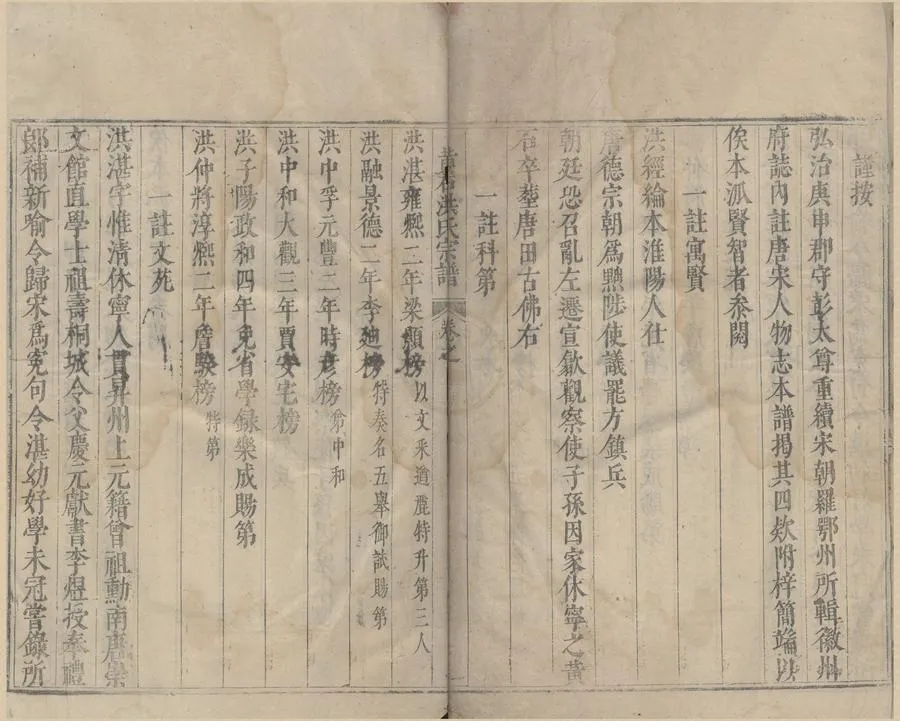 謹按
弘治庚申郡守彭太尊重續宋朝羅鄂州所輯徽州
府誌內註唐宋人物志本譜揭其四欵附梓簡端以
俟本派賢智者叅閱
一註寓賢
洪經綸本淮陽人仕
唐德宗朝爲黜陟使議罷方鎮兵
朝廷恐召亂左遷宣歙觀察使子孫因家休寧之黃
石卒塟唐田古佛右
一註科第
黃石洪氏宗譜 卷之一
洪湛雍熙二年梁顥榜以文采遒麗特升第三人
洪融景德二年李廸榜特奏名五舉御試賜第
洪中孚元豐二年時彥榜弟中和
洪中和大觀三年賈安宅榜
洪子陽政和四年免省學錄樂成賜第
洪仲將淳熙二年詹騤榜特第
一註文苑
洪湛字惟清休寧人貫昇州上元籍曾祖勳南唐崇
文館直學士祖壽桐城令父慶元獻書李煜授奉禮
郎補新喻令歸宋爲寃句令湛幼好學未冠嘗錄所